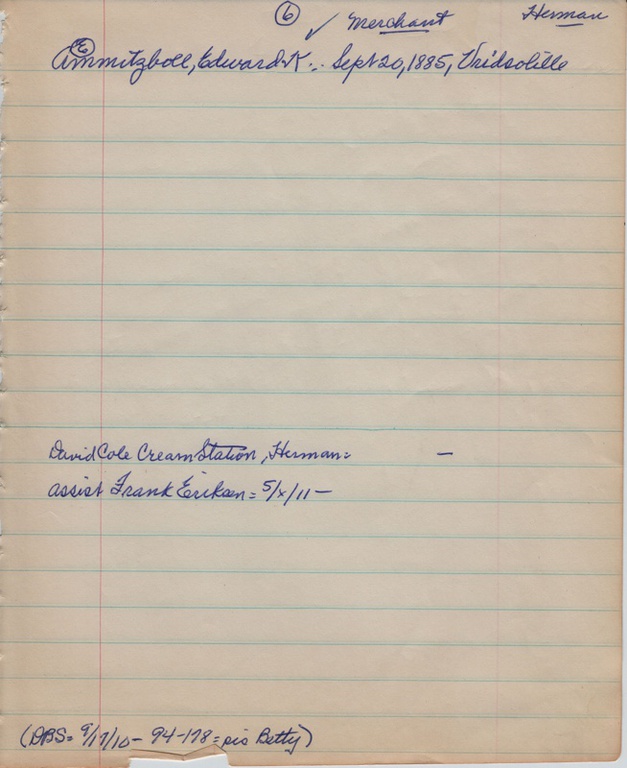 6 ✓ Merchant Herman
E
Ammitzboll, Edward K.: Sept 20, 1885, Vridsolille
David Cole Cream Station, Herman= —
assist Frank Eriksen= 5/x/11—
(DBS= 9/17/10— 94-178= sis Betty)